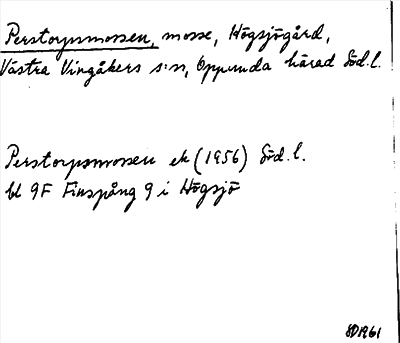 Perstorpsmossen, mosse, Högsjögård,
Västra Vingåkers s:n, Oppunda härad Söd.l.
Perstorpsmossen ek (1956) Söd.l.
bl 9F Finspång 9 i Högsjö
SD1961